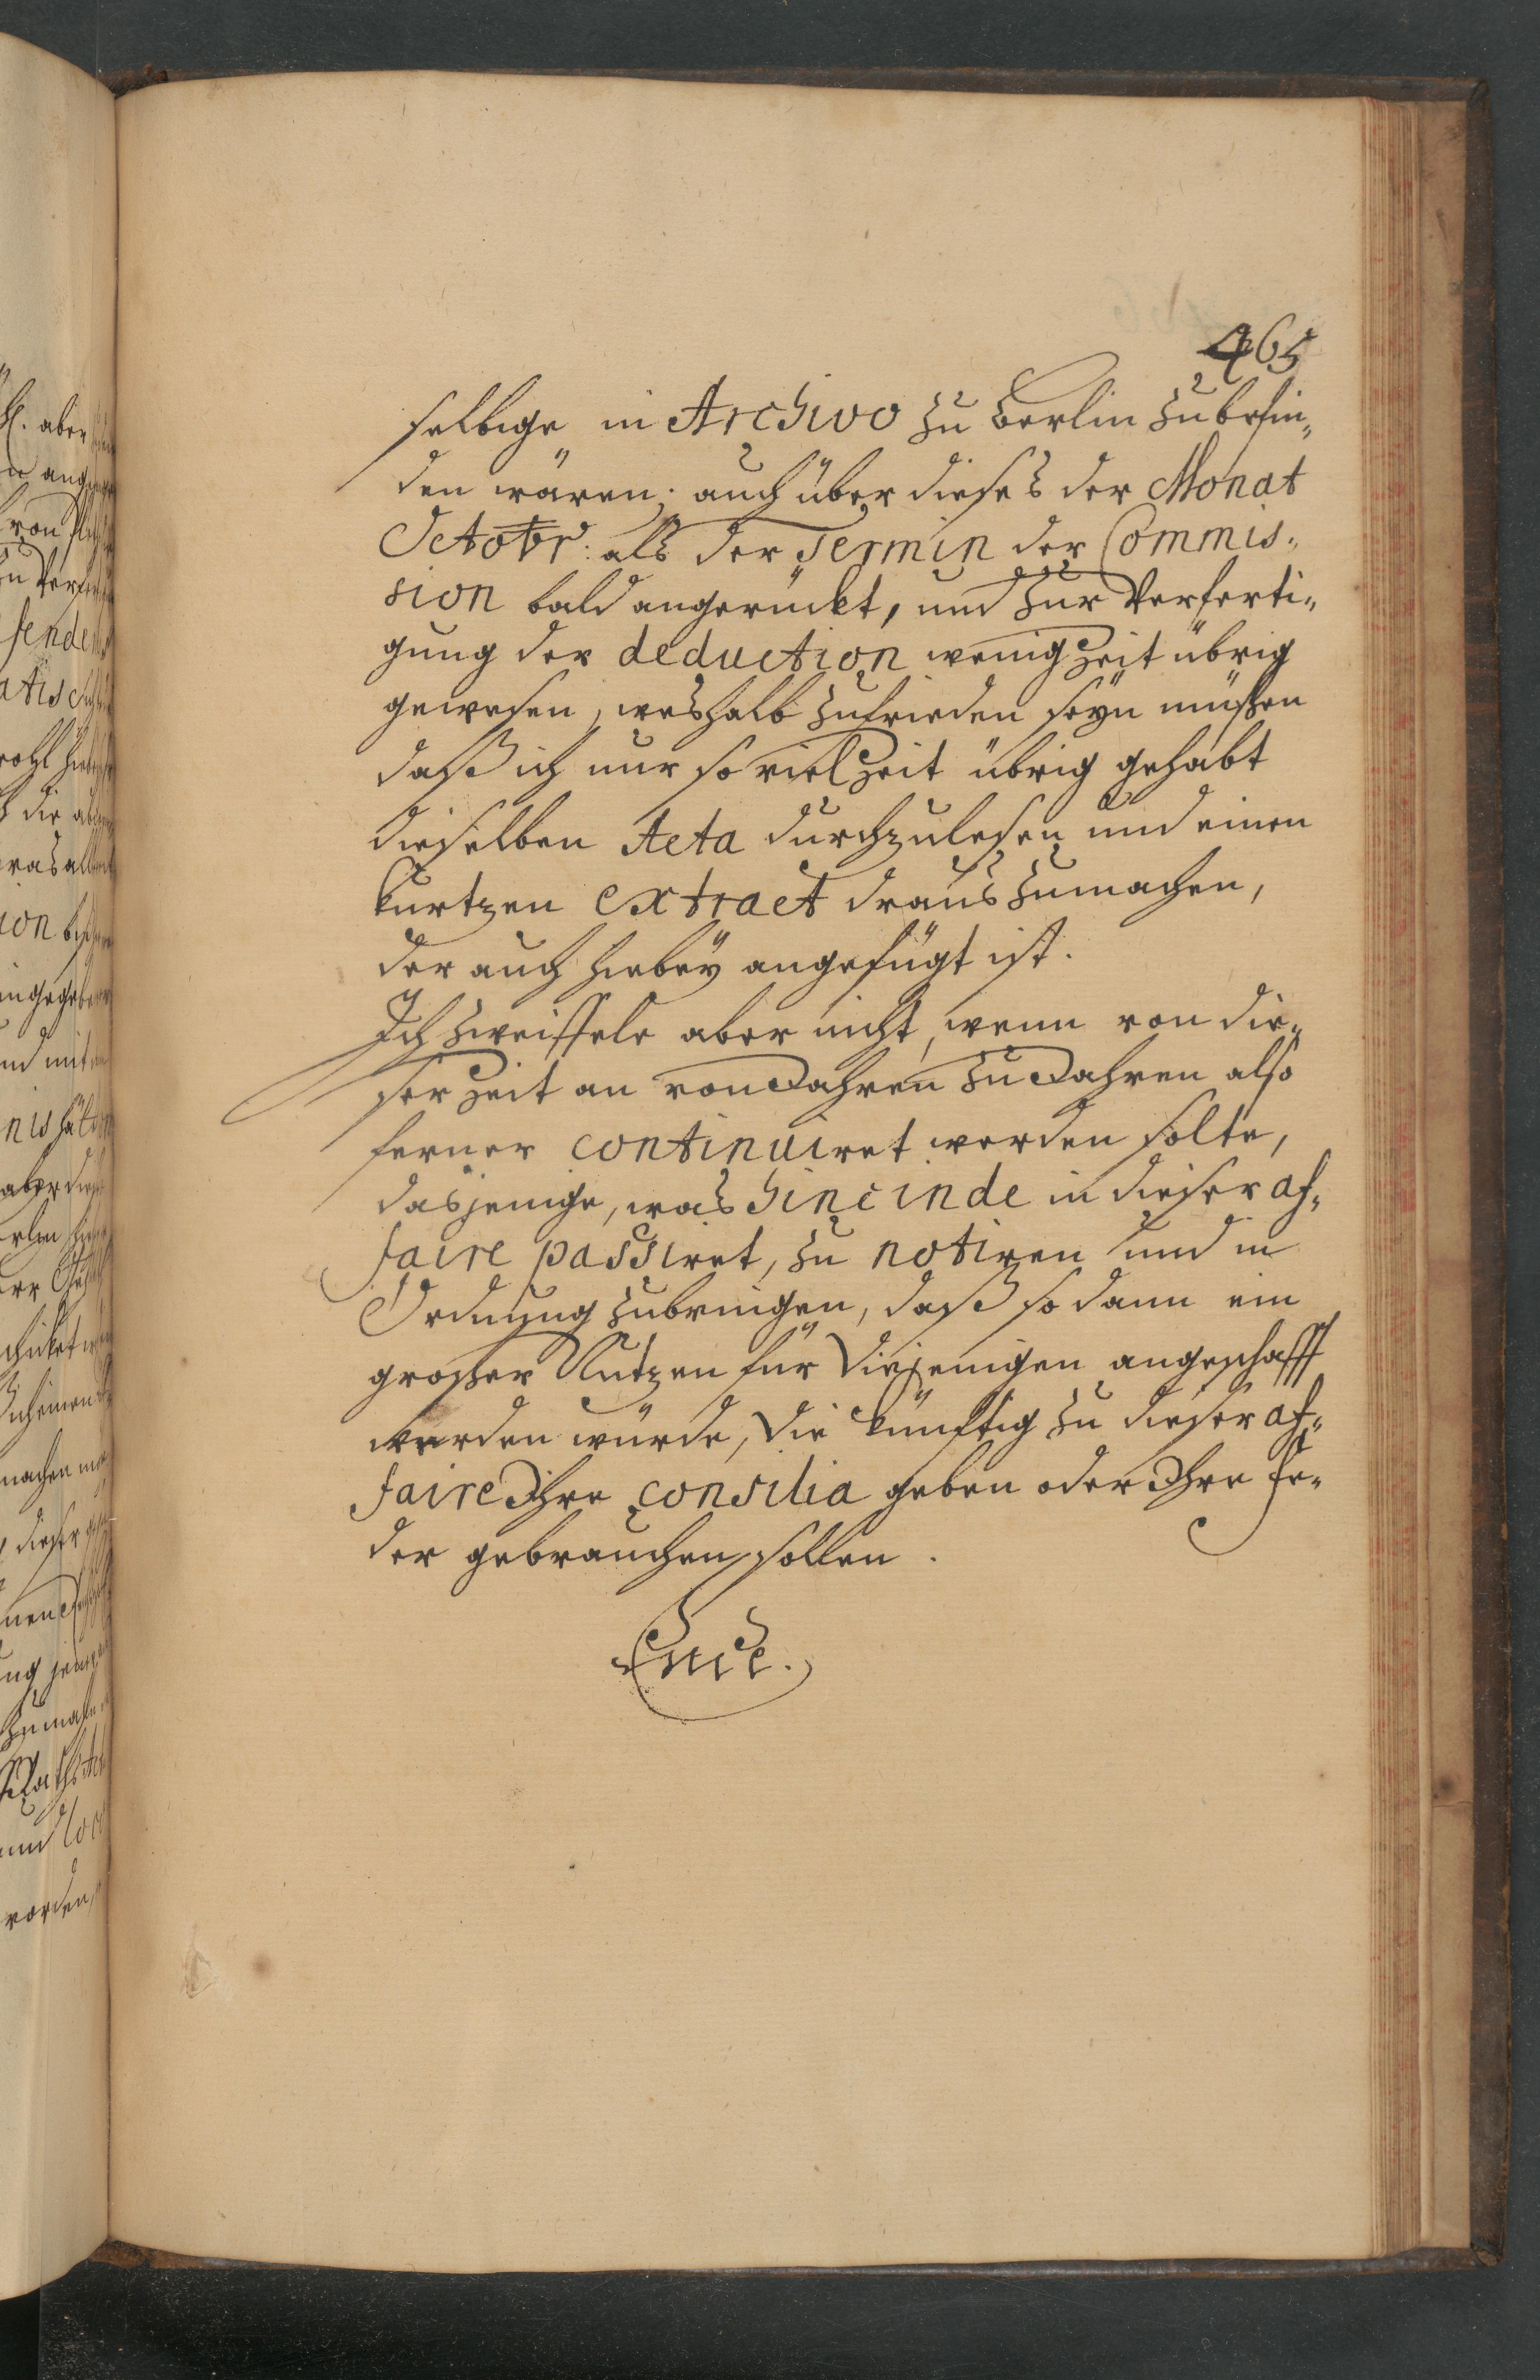 465
selbige in Archivo zu Berlin zu befin„
den wären; auch über dieses der Monat
Octobr: als der Termin der Commis„
sion bald angerückt, und zur Verferti„
gung der deduction wenig Zeit übrig
gewesen, weshalb zufrieden seyn müßen
daß ich nur so viel Zeit übrig gehabt
dieselben Acta durchzulesen und einen
kurtzen extract draus zumachen,
der auch hiebey angefügt ist.
Ich zweiffele aber nicht, wenn von die„
ser Zeit an von Jahren zu Jahren also
ferner continuiret werden solte,
dasjenige, was hinc inde in dieser af„
faire passiret, zu notiren und in
Ordnung zubringen, daß so dann ein
großer Nutzen für diejenigen angeschafft
werden würde, die künftig zu dieser af„
faire Ihre consilia geben oder Ihre Fe„
der gebrauchen sollen.